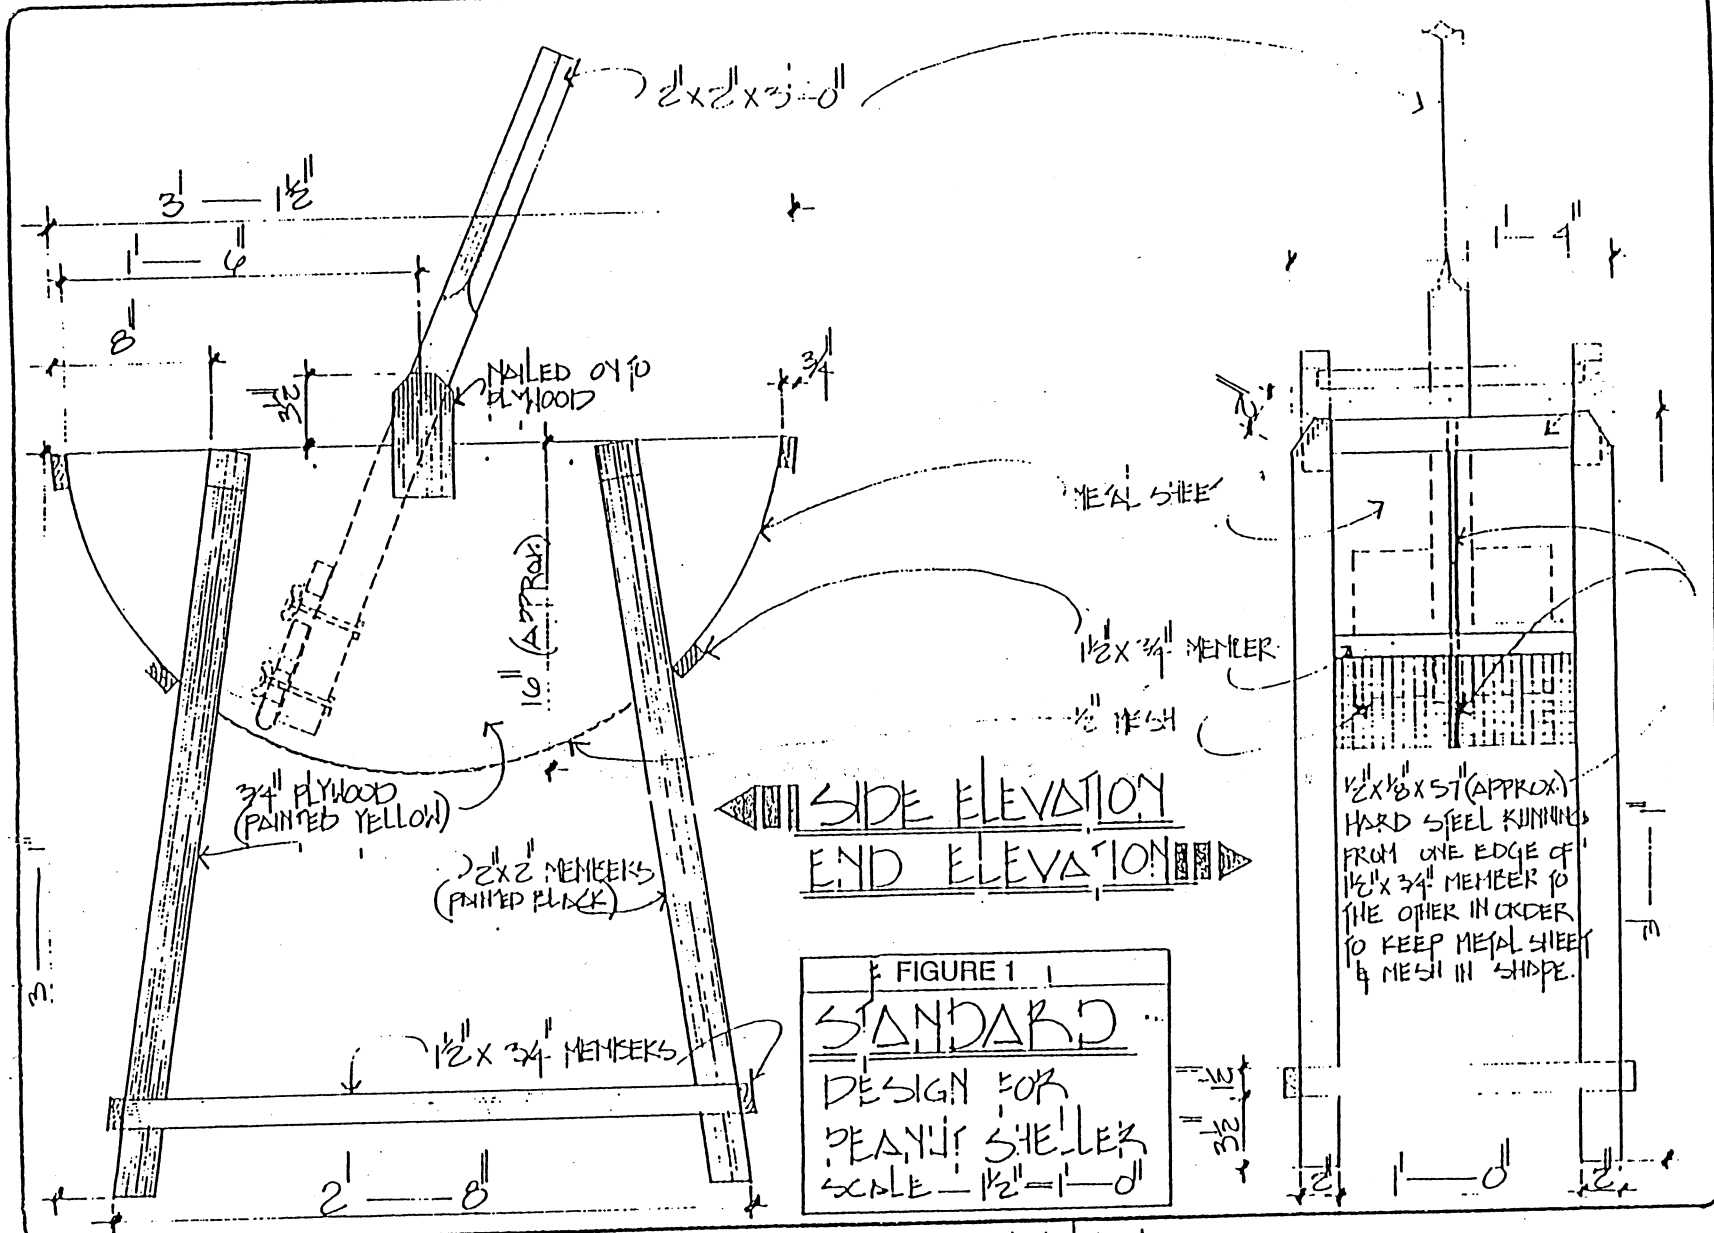 2" x 2" x 3'-0"
3' — 1½"
1' — 6"
8"
3½"
NAILED ON TO
PLYWOOD
¾"
1'— 4"
2"
METAL SHEET
16" (APPROX.)
1½" x ¾" MEMBER
½" MESH
¾" PLYWOOD
(PAINTED YELLOW)
2" x 2" MEMBERS
(PAINTED BLACK)
SIDE ELEVATION
END ELEVATION
½" x ⅛" x 57" (APPROX.)
HARD STEEL RUNNING
FROM ONE EDGE OF
1½" x ¾" MEMBER TO
THE OTHER IN ORDER
TO KEEP METAL SHEET
& MESH IN SHAPE.
1½" x ¾" MEMBERS
FIGURE 1
STANDARD
DESIGN FOR
PEANUT SHELLER
SCALE — 1½" = 1'— 0"
3½"
2' — 8"
2"
1' — 0"
2"